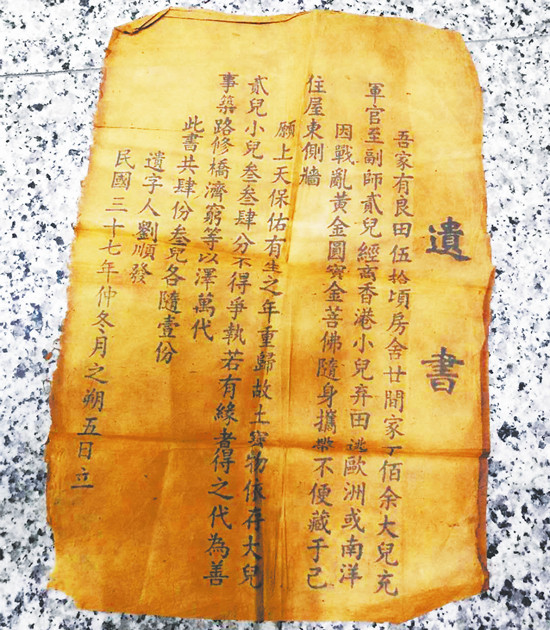 遺書
吾家有良田伍拾頃房舍廿間家丁佰余大兒充
軍官至副師貳兒經商香港小兒弃田逃歐洲或南洋
因戰亂黃金圓寶金菩佛隨身攜帶不便藏于己
住屋東側墻
願上天保佑有生之年重歸故土寶物依存大兒
貳兒小兒叁叁肆分不得爭執若有緣者得之代為善
事築路修橋濟窮等以澤萬代
此書共肆份叁兒各隨壹份
遺字人劉順發
民國三十七年仲冬月之朔五日立